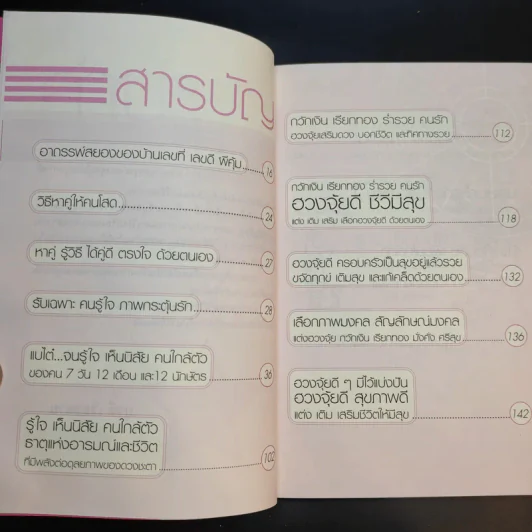 สารบัญ
อาถรรพ์สยองของบ้านเลขที่ เลขดี ผีคุ้ม 16
วิธีหาคู่ให้คนโสด 24
หาคู่ รู้วิธี ได้คู่ดี ตรงใจ ด้วยตนเอง 27
รับเฉพาะ คนรู้ใจ ภาพกระตุ้นรัก 28
แบไต๋...จนรู้ใจ เห็นนิสัย คนใกล้ตัว
ของคน 7 วัน 12 เดือน และ12 นักษัตร 36
รู้ใจ เห็นนิสัย คนใกล้ตัว
ธาตุแห่งอารมณ์และชีวิต
ที่มีพลังต่อดุลยภาพของดวงชะตา 102
กวักเงิน เรียกทอง ร่ำรวย คนรัก
ฮวงจุ้ยเสริมดวง บอกชีวิต และทิศทางรวย 112
กวักเงิน เรียกทอง ร่ำรวย คนรัก
ฮวงจุ้ยดี ชีวีมีสุข
แต่ง เติม เสริม เลือกฮวงจุ้ยดี ด้วยตนเอง 118
ฮวงจุ้ยดี ครอบครัวเป็นสุขอยู่แล้วรวย
ขจัดทุกข์ เติมสุข และแก้เคล็ดด้วยตนเอง 132
เลือกภาพมงคล สัญลักษณ์มงคล
แต่งฮวงจุ้ย กวักเงิน เรียกทอง มั่งคั่ง ศรีสุข 136
ฮวงจุ้ยดี ๆ มีไว้แบ่งปัน
ฮวงจุ้ยดี สุขภาพดี
แต่ง เติม เสริมชีวิตให้มีสุข 142